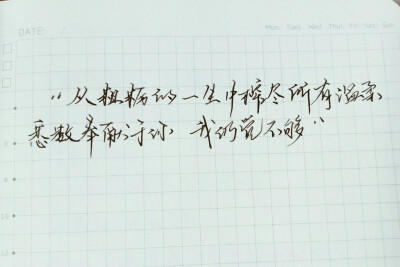 DATE: / Mon. Tues. Wed. Thur. Fri. Sat. Sun.
“从粗粝的一生中榨尽所有温柔
悉数奉献于你 我仍觉不够”